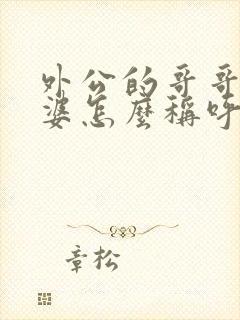 外公的哥哥
婆怎麼稱呼
章松